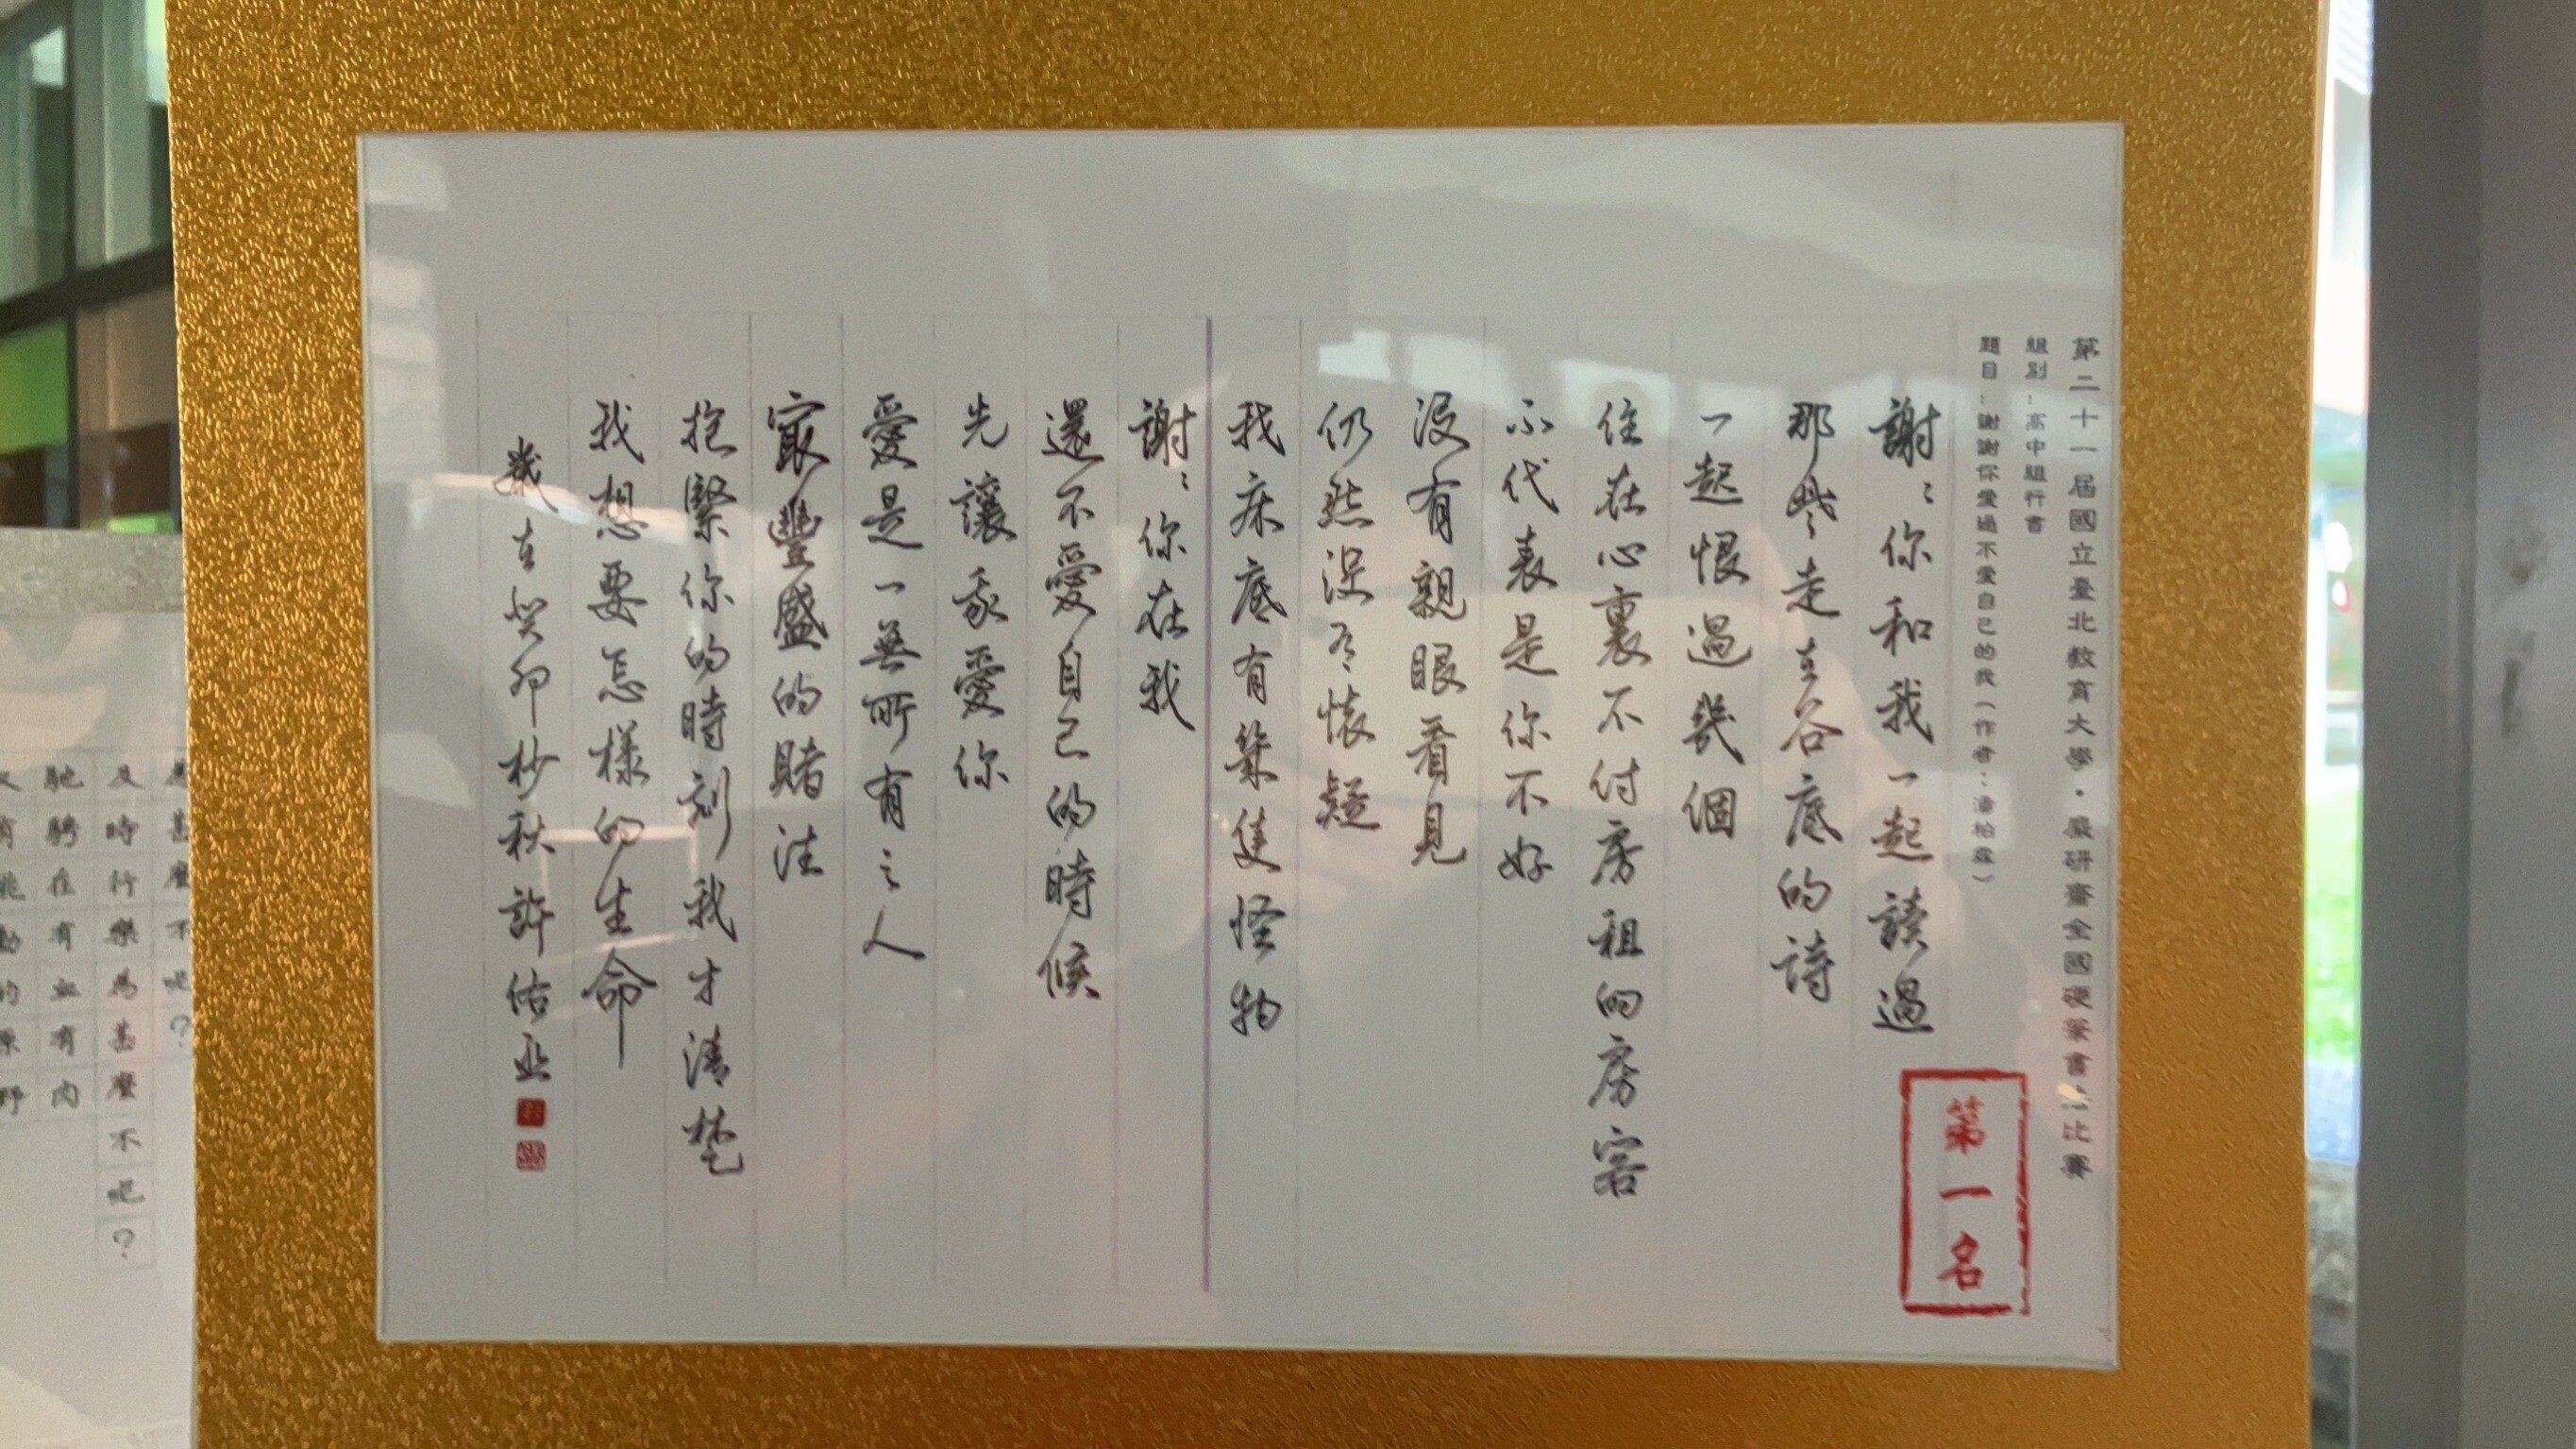 第二十一屆國立臺北教育大學・嚴研齋全國硬筆書法比賽
組別：高中組行書
題目：謝謝你愛過不愛自己的我（作者：潘柏霖）
謝謝你和我一起讀過
那些走在谷底的詩
一起恨過幾個
住在心裏不付房租的房客
不代表是你不好
沒有親眼看見
仍然沒有懷疑
我床底有幾隻怪物
謝謝你在我
還不愛自己的時候
先讓我愛你
愛是一無所有之人
最豐盛的賭注
抱緊你的時刻我才清楚
我想要怎樣的生命
歲在癸卯杪秋許佑丞
第一名
為甚麼不呢？
及時行樂為甚麼不呢？
馳騁在有血有肉